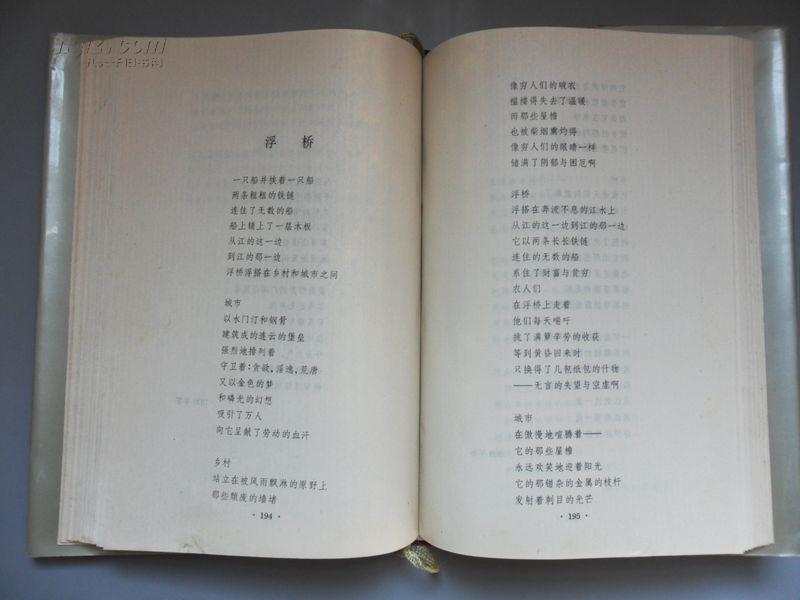 浮桥
一只船并挨着一只船
两条粗粗的铁链
连住了无数的船
船上铺上了一层木板
从江的这一边
到江的那一边
浮桥浮搭在乡村和城市之间
城市
以水门汀和钢骨
建筑成的连云的堡垒
强烈地排列着
守卫着:贪欲,淫逸,荒唐
又以金色的梦
和磷光的幻想
吸引了万人
向它呈献了劳动的血汗
乡村
站立在被风雨飘淋的原野上
那些颓废的墙堵
·194·
像穷人们的破衣
褴褛得失去了温暖
而那些屋檐
也被柴烟熏灼得
像穷人们的眼睛一样
储满了阴郁与困厄啊
浮桥
浮搭在奔流不息的江水上
从江的这一边到江的那一边
它以两条长长铁链
连住的无数的船
系住了财富与贫穷
农人们
在浮桥上走着
他们每天喘吁
挑了满箩辛劳的收获
等到黄昏回来时
只换得了几包纸包的什物
——无言的失望与空虚啊
城市
在傲慢地喧腾着——
它的那些屋檐
永远欢笑地迎着阳光
它的那错杂的金属的枝杆
发射着刺目的光芒
·195·